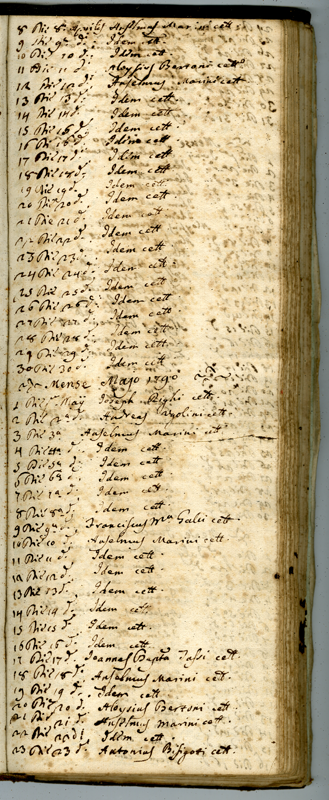 8 Die 8. Aprilis Anselmus Marini cett.
9 Die 9a d. Idem cett.
10 Die 10 d. Idem cett.
11 Die 11 d. Aloysius Bertoni cett.
12 Die 12 d. Anselmus Marini cett.
13 Die 13 d. Idem cett.
14 Die 14 d. Idem cett.
15 Die 15 d. Idem cett.
16 Die 16 d. Idem cett.
17 Die 17 d. Idem cett.
18 Die 18 d. Idem cett.
19 Die 19 d. Idem cett.
20 Die 20 d. Idem cett.
21 Die 21 d. Idem cett.
22 Die 22 d. Idem cett.
23 Die 23 d. Idem cett.
24 Die 24 d. Idem cett.
25 Die 25 d. Idem cett.
26 Die 26 d. Idem cett.
27 Die 27 d. Idem cett.
28 Die 28 d. Idem cett.
29 Die 29 d. Idem cett.
30 Die 30 d. Idem cett.
Mense Majo 1790
1 Die May Joseph Righi cett.
2 Die 2a d. Andreas cett.
3 Die 3a Anselmus Marini cett.
4 Die 4a d. Idem cett.
5 Die 5a d. Idem cett.
6 Die 6a d. Idem cett.
7 Die 7a d. Idem cett.
8 Die 8a d. Idem cett.
9 Die 9a d. Franciscus Ma Galii cett.
10 Die 10 d. Anselmus Marini cett.
11 Die 11 d. Idem cett.
12 Die 12 d. Idem cett.
13 Die 13 d. Idem cett.
14 Die 14 d. Idem cett.
15 Die 15 d. Idem cett.
16 Die 16 d. Idem cett.
17 Die 17 d. Joannes Bapta Tassi cett.
18 Die 18 d. Anselmus Marini cett.
19 Die 19 d. Idem cett.
20 Die 20 d. Aloysius Bertoni cett.
21 Die 21 d. Anselmus Marini cett.
22 Die 22 d. Idem cett.
23 Die 23 d. Antonius Bisigoti cett.